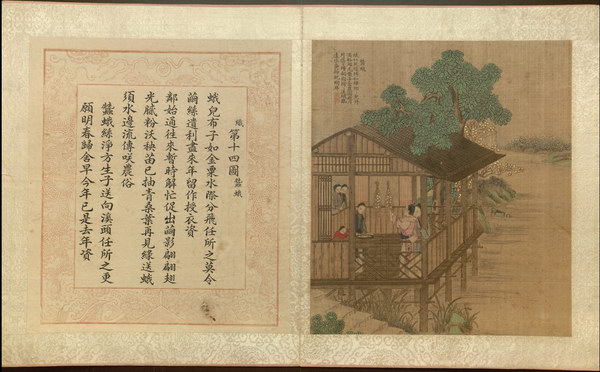 織第十四圖蠶蛾
蛾兒布子如金粟水際分飛任所之莫令
繭絲遺利盡來年留作授衣資
鄰始通往來暫時解忙促出繭影翩翩翅
光膩粉沃秧苗已抽青桑葉再見綠送蛾
須水邊流傳咲農俗
蠶蛾絲淨方生子送向溪頭任所之更
願明春歸舍早今年已是去年資
蠶蛾